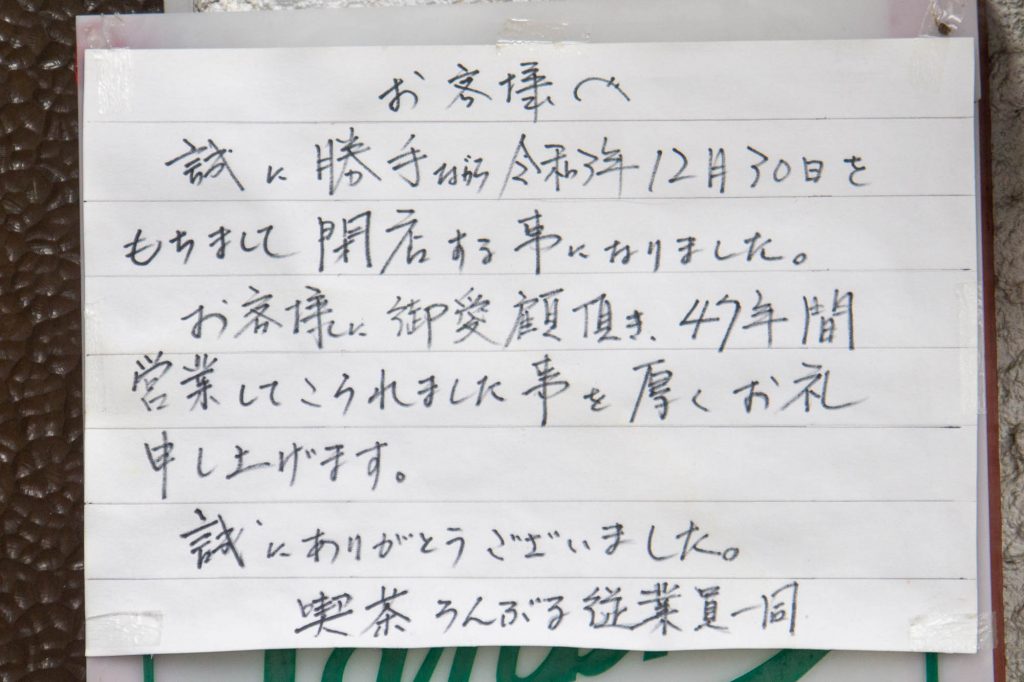 お客様へ
誠に勝手ながら令和3年12月30日を
もちまして閉店する事になりました。
お客様に御愛顧頂き、47年間
営業してこられました事を厚くお礼
申し上げます。
誠にありがとうございました。
喫茶ろんぶる従業員一同